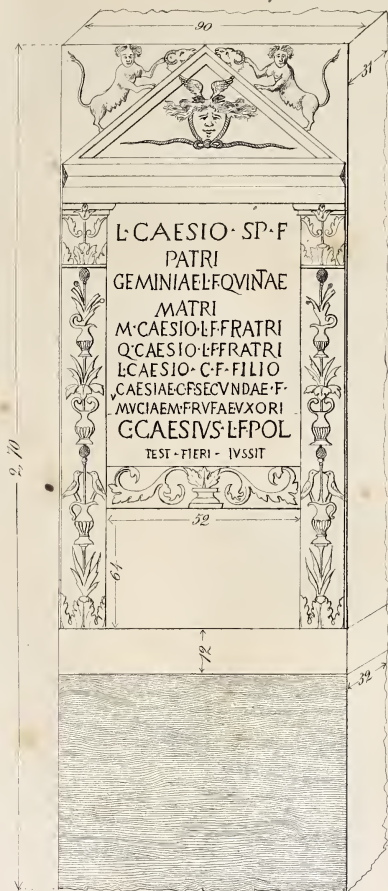 90
31
L·CAESIO·SP·F
PATRI
GEMINIAE·L·F·QVINTAE
MATRI
M·CAESIO·L·F·FRATRI
Q·CAESIO·L·F·FRATRI
L·CAESIO·C·F·FILIO
CAESIAE·C·F·SECVNDAE·F·
MVCIAE·M·F·RVFAE·VXORI
C·CAESIVS·L·F·POL
TEST·FIERI·IVSSIT
2,70
52
64
12
32